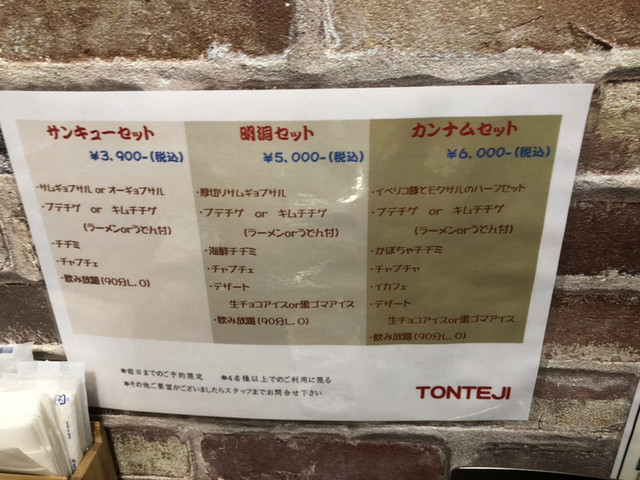 サンキューセット
¥3,900-(税込)
・サムギョプサル or オーギョプサル
・プテチゲ or キムチチゲ
(ラーメンorうどん付)
・チヂミ
・チャプチェ
・飲み放題(90分L.O)
明洞セット
¥5,000-(税込)
・厚切りサムギョプサル
・プテチゲ or キムチチゲ
(ラーメンorうどん付)
・海鮮チヂミ
・チャプチェ
・デザート
生チョコアイスor黒ゴマアイス
・飲み放題(90分L.O)
カンナムセット
¥6,000-(税込)
・イベリコ豚とモクサルのハーフセット
・プテチゲ or キムチチゲ
(ラーメンorうどん付)
・かぼちゃチヂミ
・チャプチャ
・イカフェ
・デザート
生チョコアイスor黒ゴマアイス
・飲み放題(90分L.O)
*前日までのご予約限定 *4名様以上でのご利用に限る
*その他ご要望がございましたらスタッフまでお問合せ下さい
TONTEJI